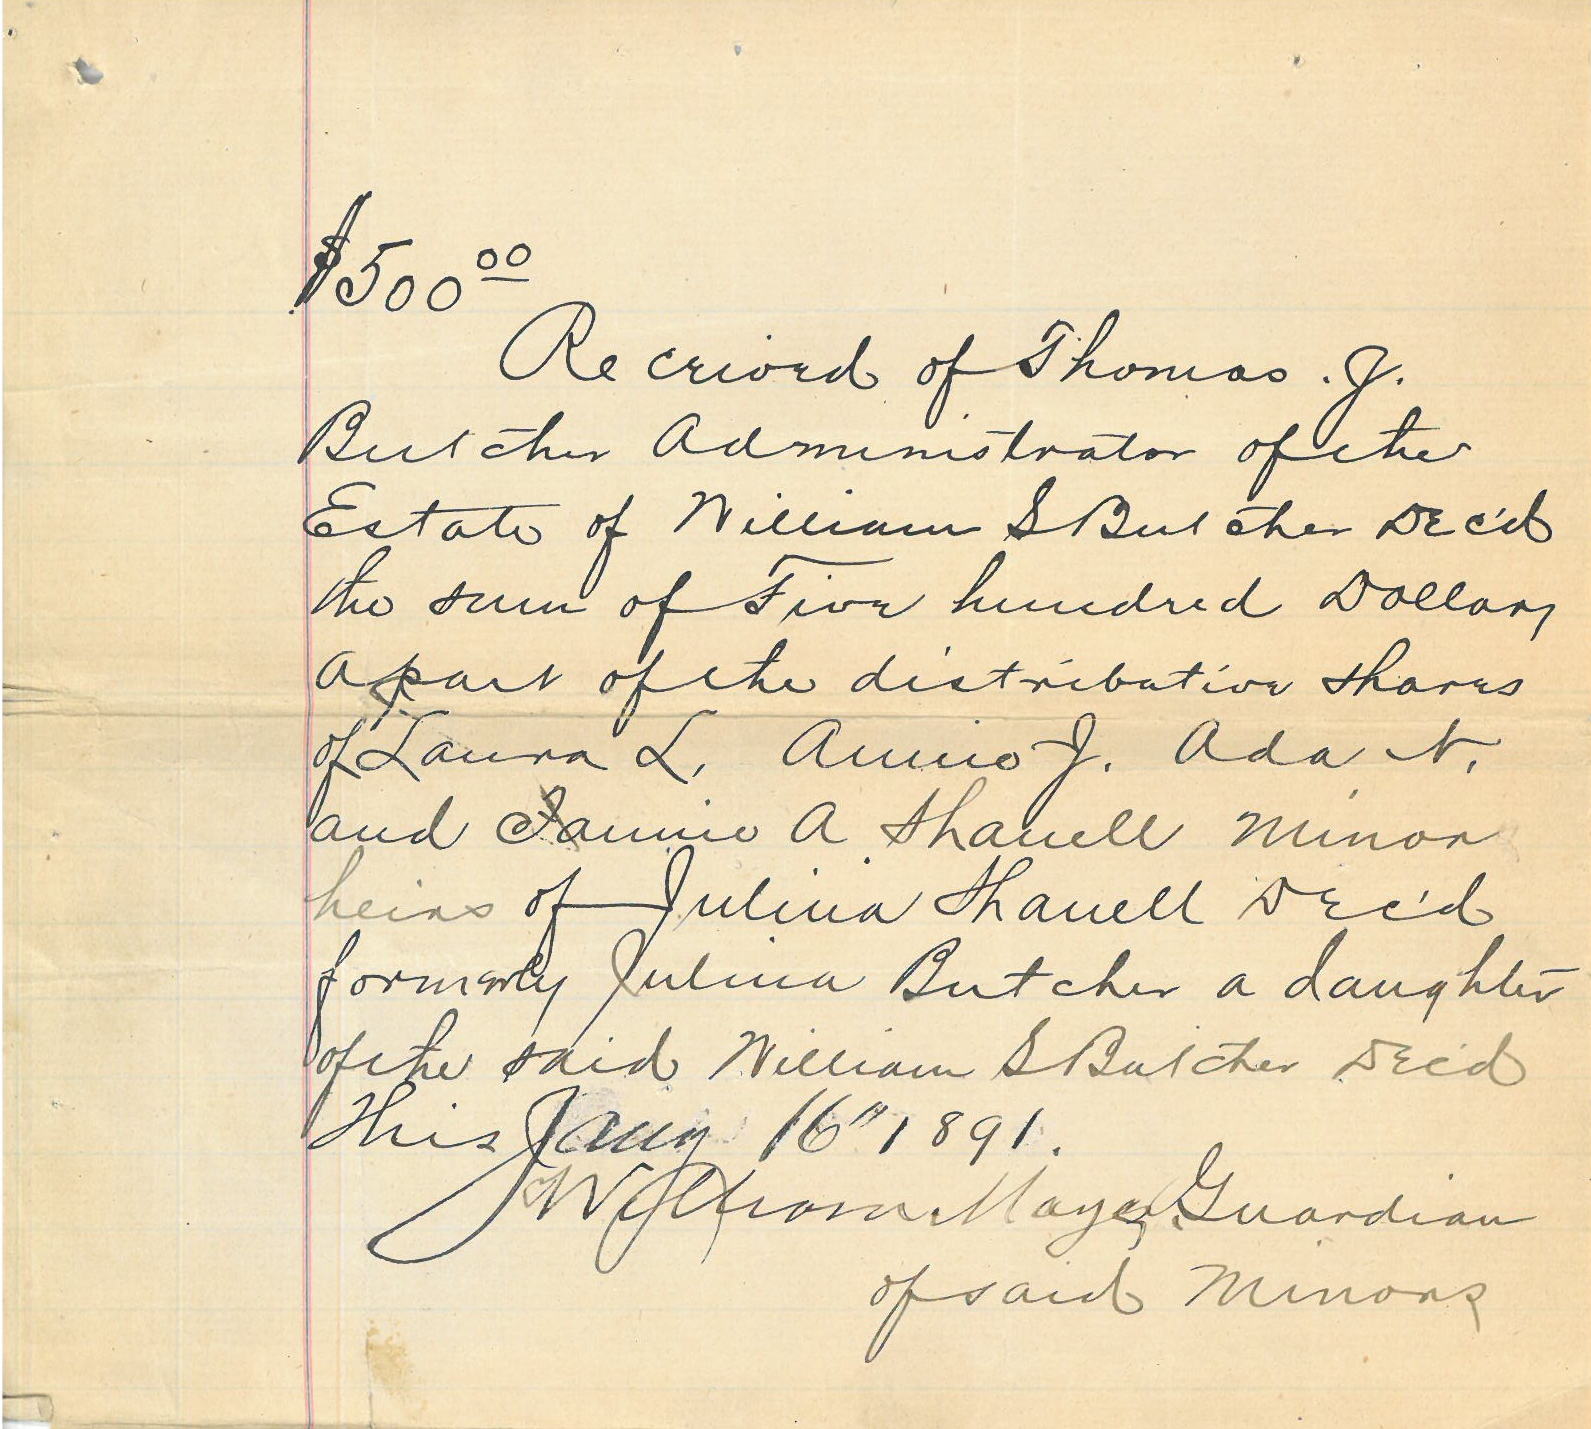 $500.00
Received of Thomas . J.
Butcher Administrator of the
Estate of William S Butcher Dec'd
the sum of Five hundred Dollars
a part of the distributive shares
of Laura L. Annie J. Ada N.
and Fannie A Shanell minor
heirs of Julina Shanell Dec'd
formerly Julina Butcher a daughter
of the said William S Butcher Dec'd
This Jany 16" 1891.
Guardian
of said Minors